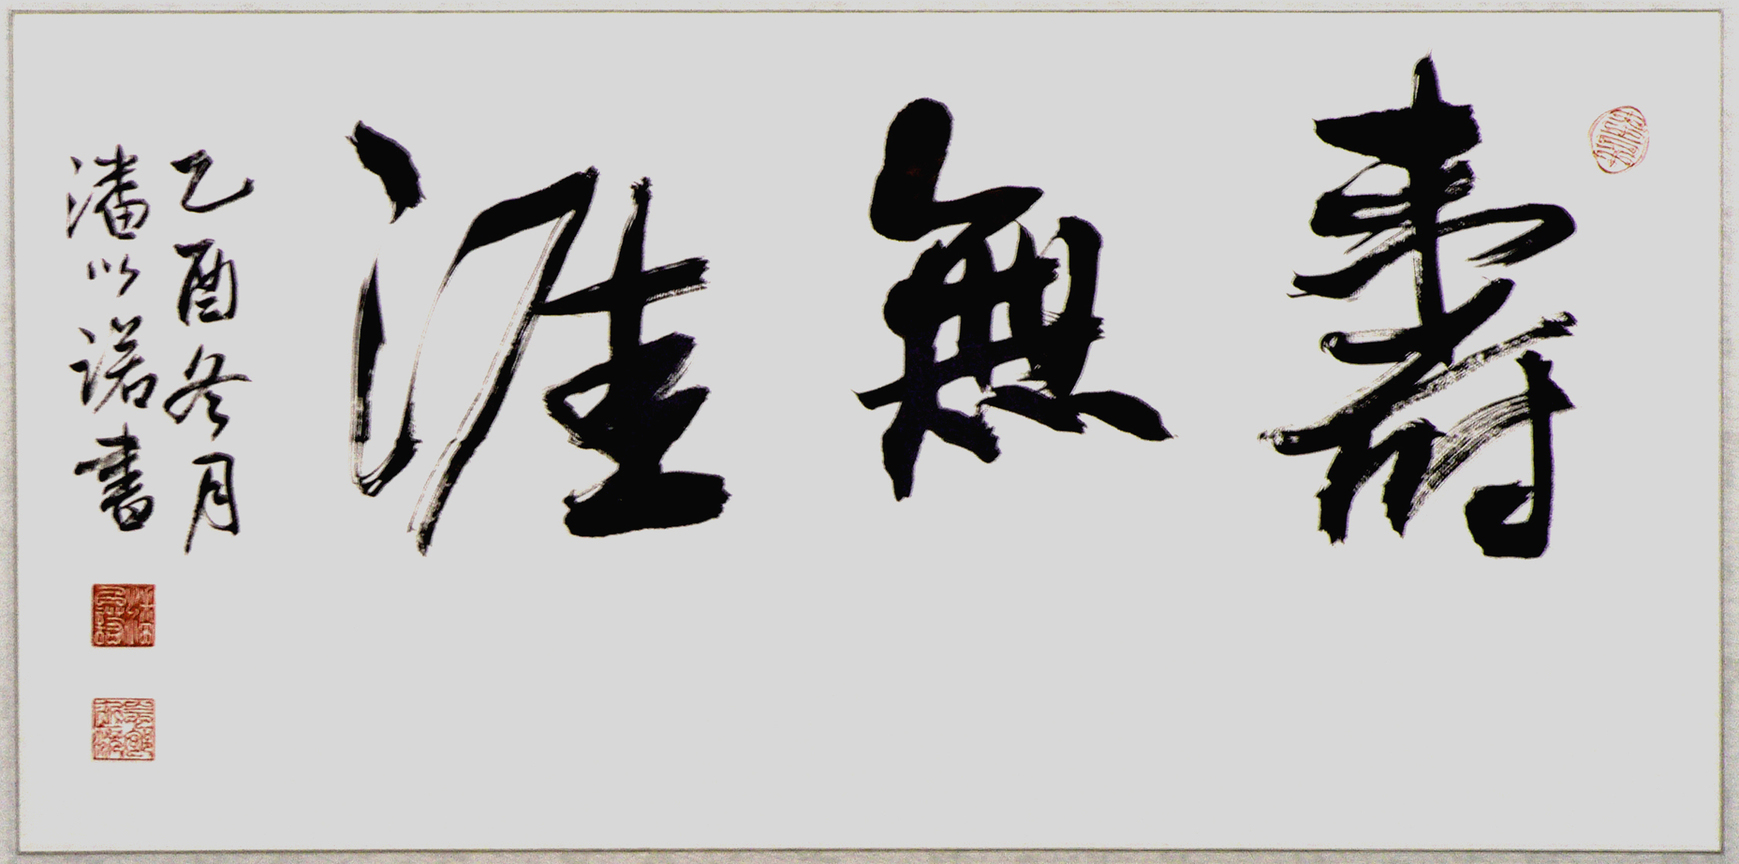 壽無涯
乙酉冬月
潘以诺書